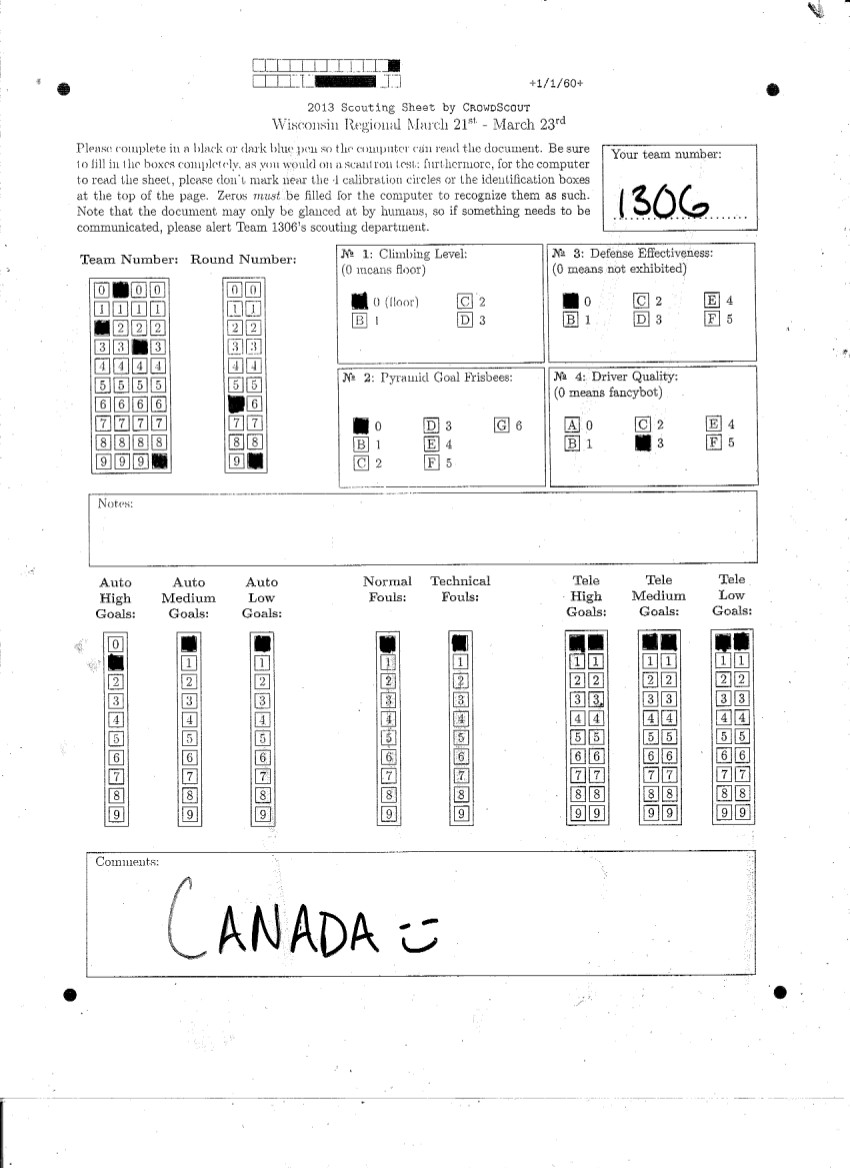 +1/1/60+
2013 Scouting Sheet by CROWDSCOUT
Wisconsin Regional March 21st - March 23rd
Please complete in a black or dark blue pen so the computer can read the document. Be sure
to fill in the boxes completely, as you would on a scantron test; furthermore, for the computer
to read the sheet, please don't mark near the 4 calibration circles or the identification boxes
at the top of the page. Zeros must be filled for the computer to recognize them as such.
Note that the document may only be glanced at by humans, so if something needs to be
communicated, please alert Team 1306's scouting department.
Your team number:
1306
Team Number: Round Number:
0 0 0 0 0
1 1 1 1 1 1
2 2 2 2 2
3 3 3 3 3
4 4 4 4 4 4
5 5 5 5 5 5
6 6 6 6 6
7 7 7 7 7 7
8 8 8 8 8 8
9 9 9 9
№ 1: Climbing Level:
(0 means floor)
0 (floor) C 2
B 1 D 3
№ 3: Defense Effectiveness:
(0 means not exhibited)
0 C 2 E 4
B 1 D 3 F 5
№ 2: Pyramid Goal Frisbees:
0 D 3 G 6
B 1 E 4
C 2 F 5
№ 4: Driver Quality:
(0 means fancybot)
A 0 C 2 E 4
B 1 3 F 5
Notes:
Auto High Goals: Auto Medium Goals: Auto Low Goals: Normal Fouls: Technical Fouls: Tele High Goals: Tele Medium Goals: Tele Low Goals:
0
1 1 1 1 1 1 1 1 1 1
2 2 2 2 2 2 2 2 2 2 2
3 3 3 3 3 3 3 3 3 3 3
4 4 4 4 4 4 4 4 4 4 4
5 5 5 5 5 5 5 5 5 5 5
6 6 6 6 6 6 6 6 6 6 6
7 7 7 7 7 7 7 7 7 7 7
8 8 8 8 8 8 8 8 8 8 8
9 9 9 9 9 9 9 9 9 9 9
Comments:
CANADA